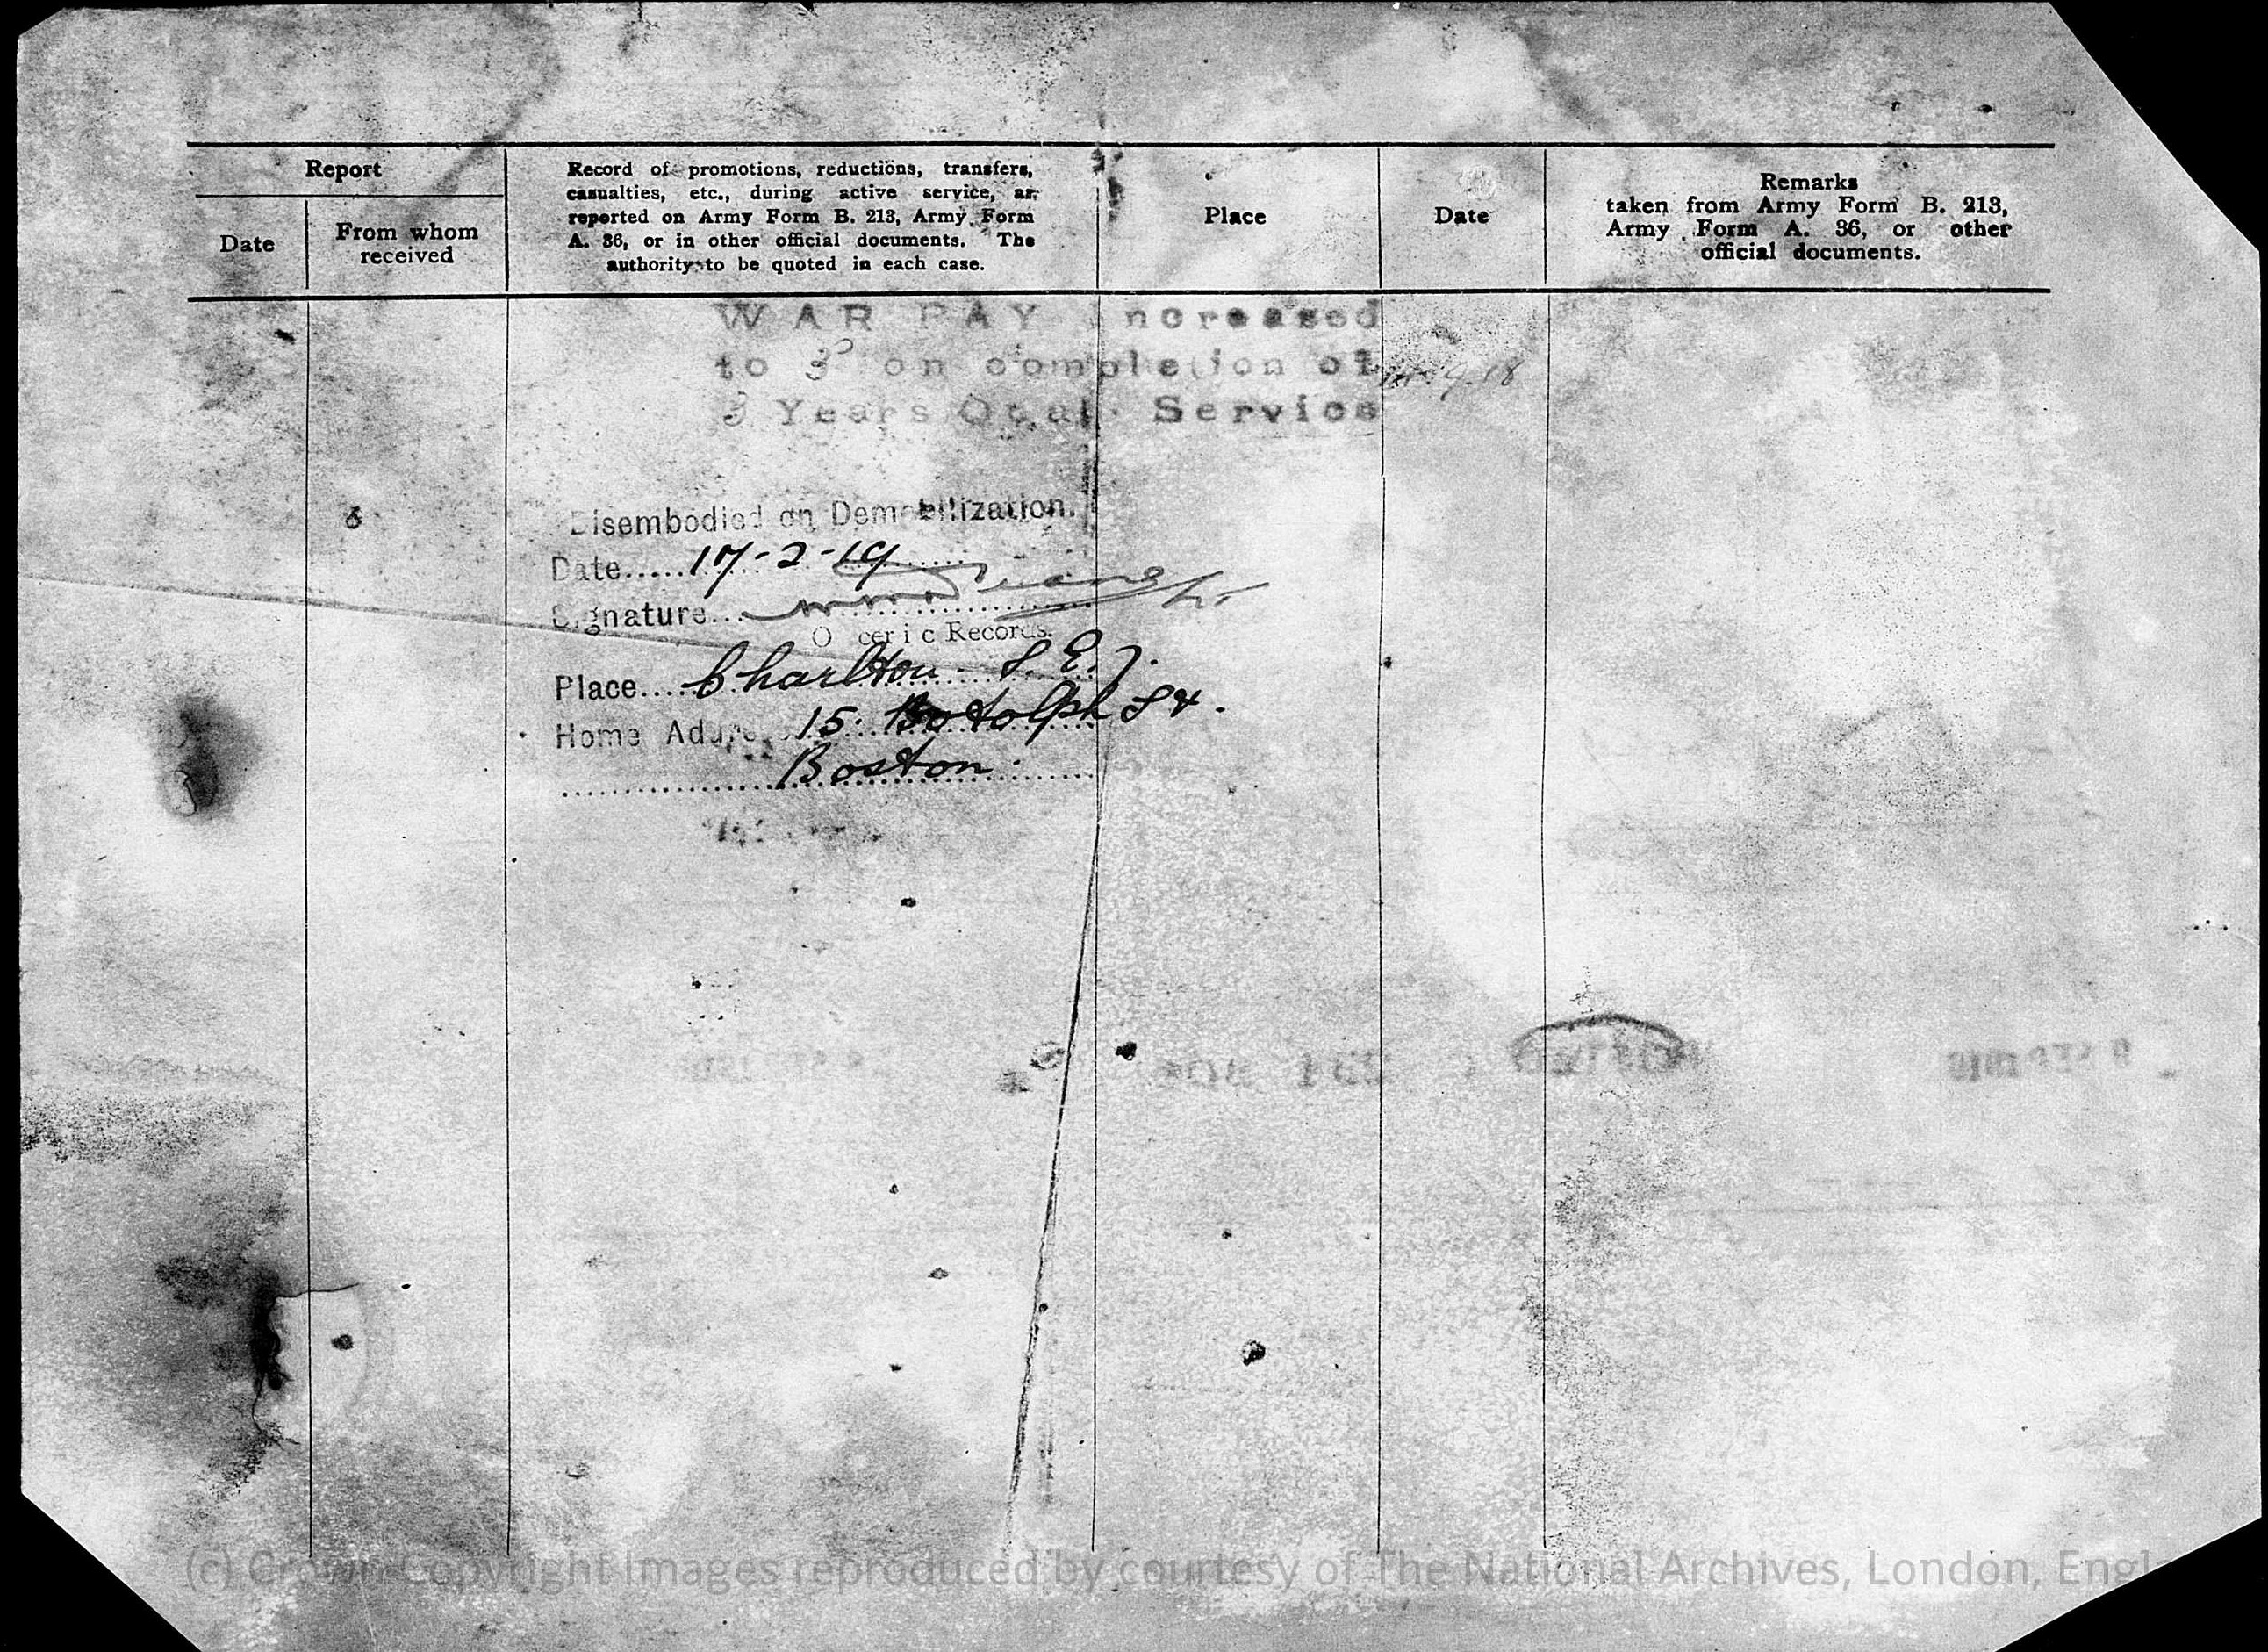 Report
Date
From whom
received
Record of promotions, reductions, transfers,
casualties, etc., during active service, as
reported on Army Form B. 213, Army Form
A. 36, or in other official documents. The
authority to be quoted in each case.
Place
Date
Remarks
taken from Army Form B. 213,
Army Form A. 36, or other
official documents.
WAR PAY increased
to 3d on completion of
3 Years Qual. Service
Disembodied on Demobilization.
Date.....17-2-19
Signature...
Officer i/c Records.
Place....Charlton S.E.7.
Home Address 15. Botolph St.
Boston
(c) Crown Copyright Images reproduced by courtesy of The National Archives, London, Engl